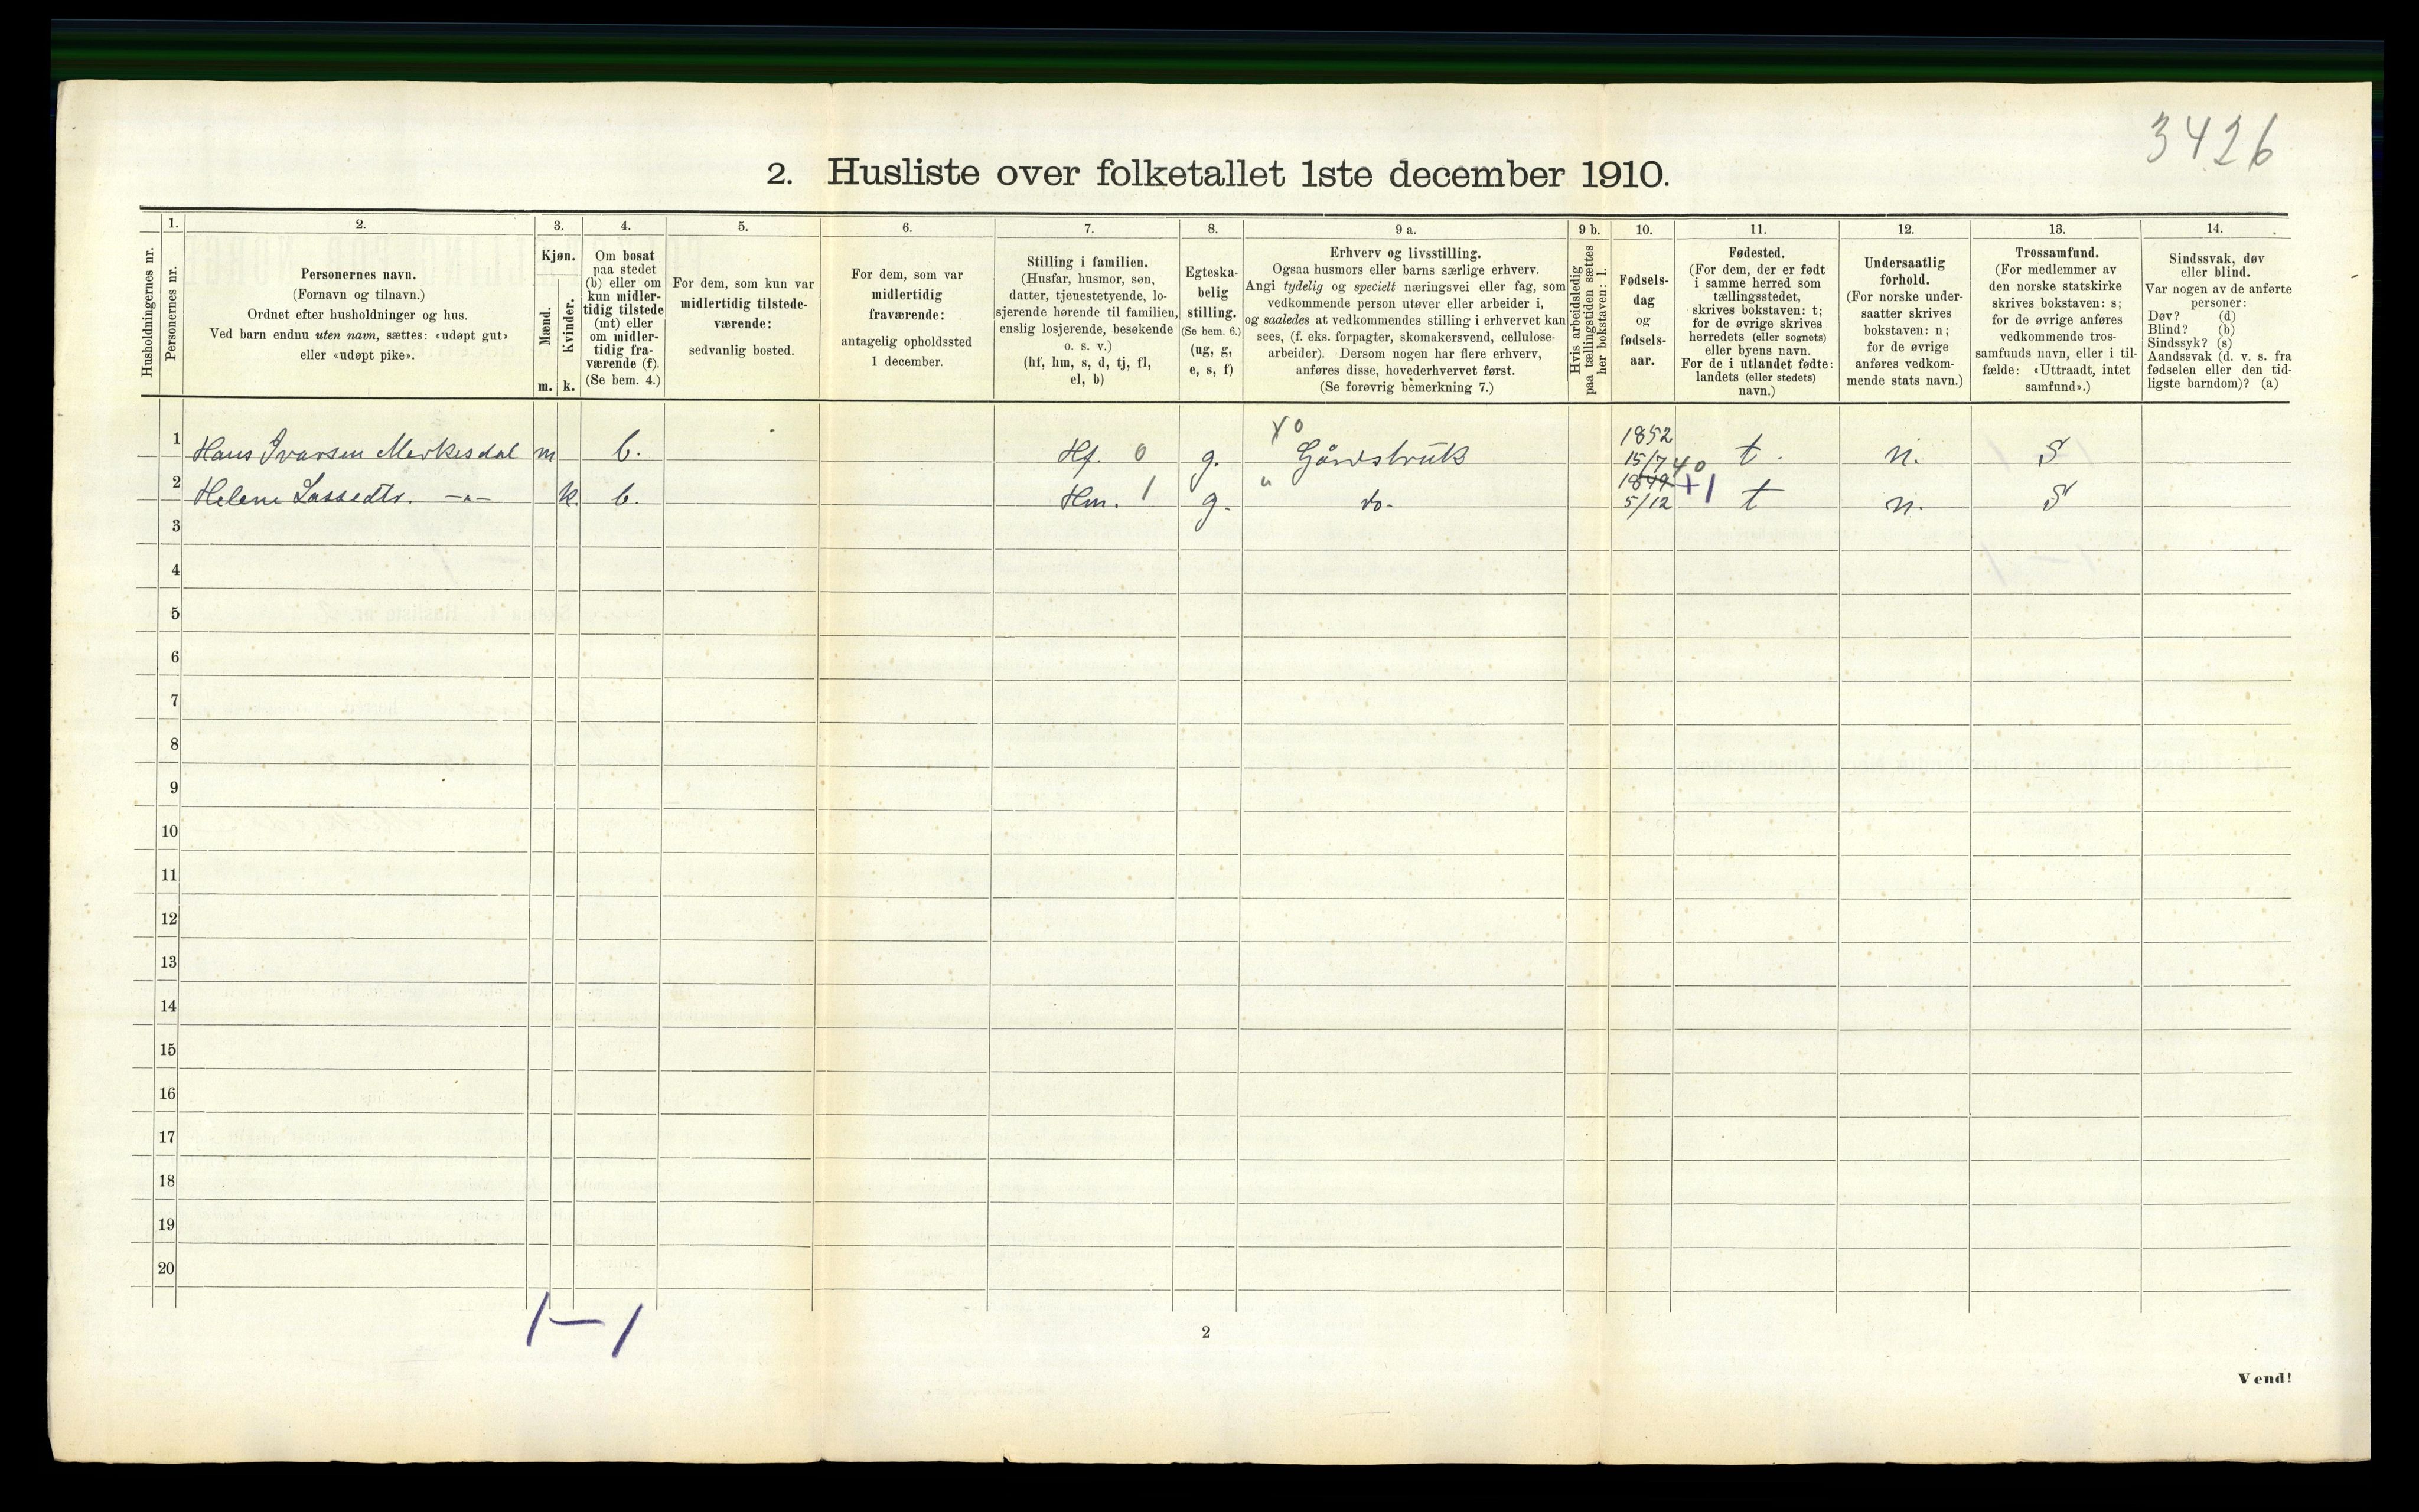 3426
2. Husliste over folketallet 1ste december 1910.
Husholdningernes nr.
1.
Personernes nr.
2.
Personernes navn.
(Fornavn og tilnavn.)
Ordnet efter husholdninger og hus.
Ved barn endnu uten navn, sættes: «udøpt gut»
eller «udøpt pike».
3.
Kjøn.
Mænd.
m.
Kvinder.
k.
4.
Om bosat
paa stedet
(b) eller om
kun midler-
tidig tilstede
(mt) eller
om midler-
tidig fra-
værende (f).
(Se bem. 4.)
5.
For dem, som kun var
midlertidig tilstede-
værende:
sedvanlig bosted.
6.
For dem, som var
midlertidig
fraværende:
antagelig opholdssted
1 december.
7.
Stilling i familien.
(Husfar, husmor, søn,
datter, tjenestetyende, lo-
sjerende hørende til familien,
enslig losjerende, besøkende
o. s. v.)
(hf, hm, s, d, tj, fl,
el, b)
8.
Egteska-
belig
stilling.
(Se bem. 6.)
(ug, g,
e, s, f)
9 a.
Erhverv og livsstilling.
Ogsaa husmors eller barns særlige erhverv.
Angi tydelig og specielt næringsvei eller fag, som
vedkommende person utøver eller arbeider i,
og saaledes at vedkommendes stilling i erhvervet kan
sees, (f. eks. forpagter, skomakersvend, cellulose-
arbeider). Dersom nogen har flere erhverv,
anføres disse, hovederhvervet først.
(Se forøvrig bemerkning 7.)
9 b.
Hvis arbeidsledig
paa tællingstiden sættes
her bokstaven: l.
10.
Fødsels-
dag
og
fødsels-
aar.
11.
Fødested.
(For dem, der er født
i samme herred som
tællingsstedet,
skrives bokstaven: t;
for de øvrige skrives
herredets (eller sognets)
eller byens navn.
For de i utlandet fødte:
landets (eller stedets)
navn.)
12.
Undersaatlig
forhold.
(For norske under-
saatter skrives
bokstaven: n;
for de øvrige
anføres vedkom-
mende stats navn.)
13.
Trossamfund.
(For medlemmer av
den norske statskirke
skrives bokstaven: s;
for de øvrige anføres
vedkommende tros-
samfunds navn, eller i til-
fælde: «Uttraadt, intet
samfund».)
14.
Sindssvak, døv
eller blind.
Var nogen av de anførte
personer:
Døv? (d)
Blind? (b)
Sindssyk? (s)
Aandssvak (d. v. s. fra
fødselen eller den tid-
ligste barndom)? (a)
1 Hans Ivarsen Merkesdal m b. Hf. 0 g. Xo Gårdsbruk 1852 15/7 t. n. S
2 Helene Lassedtr. -"- k. b. Hm. 1 g. " do. 1849 40 +1 5/12 t n. S
3
4
5
6
7
8
9
10
11
12
13
14
15
16
17
18
19
20
1 – 1
2
Vend!